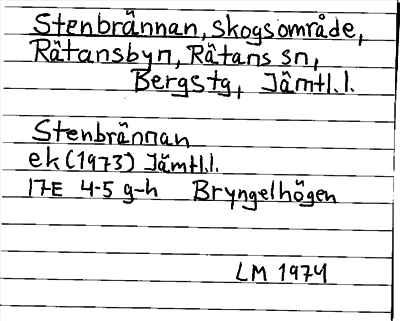 Stenbrännan, skogsområde,
Rätansbyn, Rätans sn,
Bergs tg, Jämtl.l.
Stenbrännan
ek (1973) Jämtl.l.
17E 4-5 g-h Bryngelhögen
LM 1974